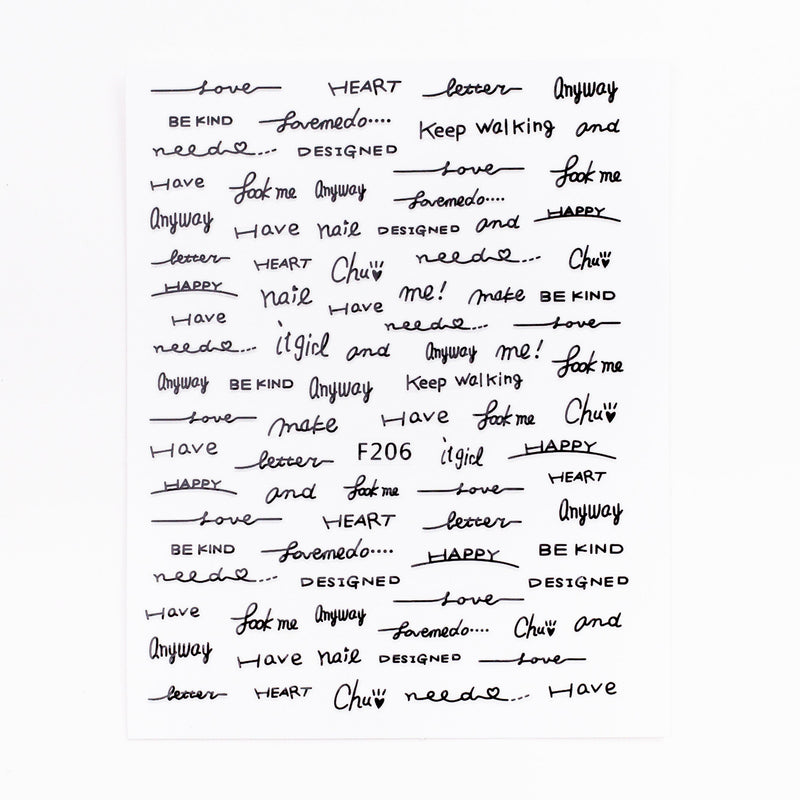 Love HEART letter Anyway
BE KIND Lovemedo.... Keep walking and
need... DESIGNED Love Look me
Have Look me Anyway Lovemedo....
Anyway Have nail DESIGNED and HAPPY
letter HEART Chu need... Chu
HAPPY nail Have me! make BE KIND
Have need... Love
need... it girl and Anyway me! Look me
Anyway BE KIND Anyway Keep walking
Love make Have Look me Chu
Have letter F206 it girl HAPPY
HAPPY and Look me Love HEART
Love HEART letter Anyway
BE KIND Lovemedo.... HAPPY BE KIND
need... DESIGNED Love DESIGNED
Have Look me Anyway Lovemedo.... Chu and
Anyway Have nail DESIGNED Love
letter HEART Chu need... Have